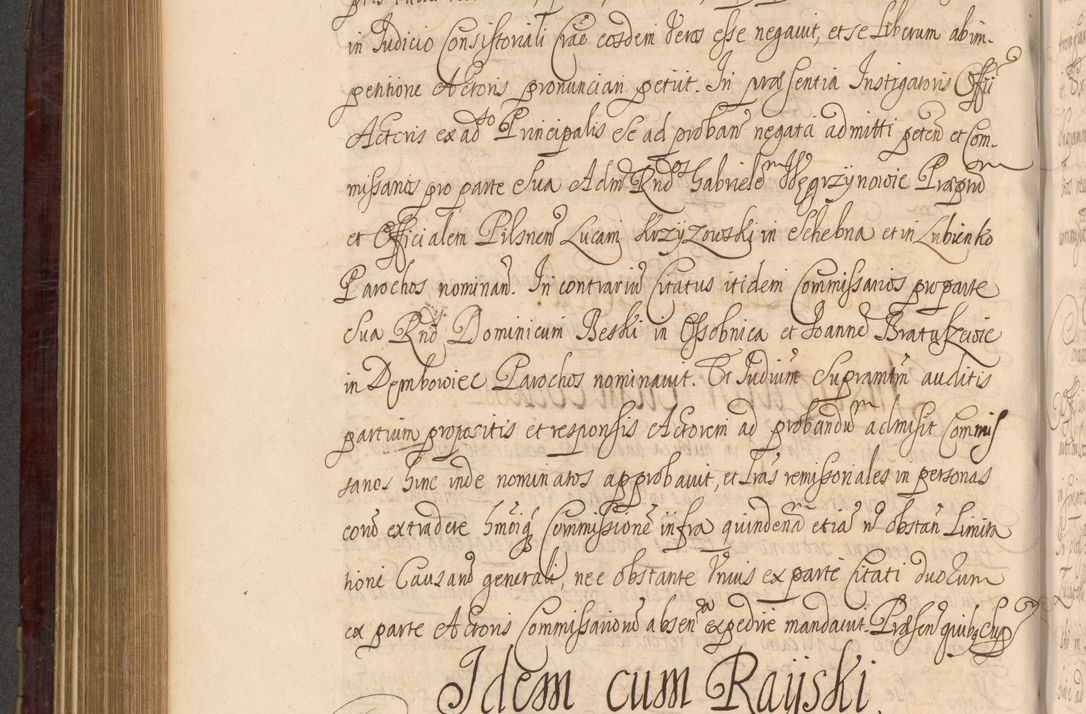 in Judicio Consistoriali Crae eosdem veros esse negavit, et se Liberum ab im-
petitione Actoris pronunciari petiit. In præsentia Instigatoris Officii
Actoris ex add Principalis se ad proband negata admitti peten et Com-
missarios pro parte sua Adm Rndos Gabriele Węgrzynowic Præpm
et Officialem Pilsnen Lucam Krzyzowski in Schebna et in Lubienko
Parochos nominan. In contrarium Citatus itidem Commissarios pro parte
sua Rnd Dominicum Beski in Ossobnica et Joanne Bratuszewic
in Dembowiec Parochos nominavit. Et Judium Supranttm auditis
partium propositis et responsis Actorem ad probandum admisit Commis
sarios hinc inde nominatos approbavit, et Lras remissoriales in personas
eorum extradere hmoiq Commissione infra quindena etia n obstan Limita
tione Causarum generali, nec obstante Unius ex parte Citati duorum
ex parte Actoris Commissariorum absen expedire mandavit. Præsen quibus Sup
Idem cum Rayski